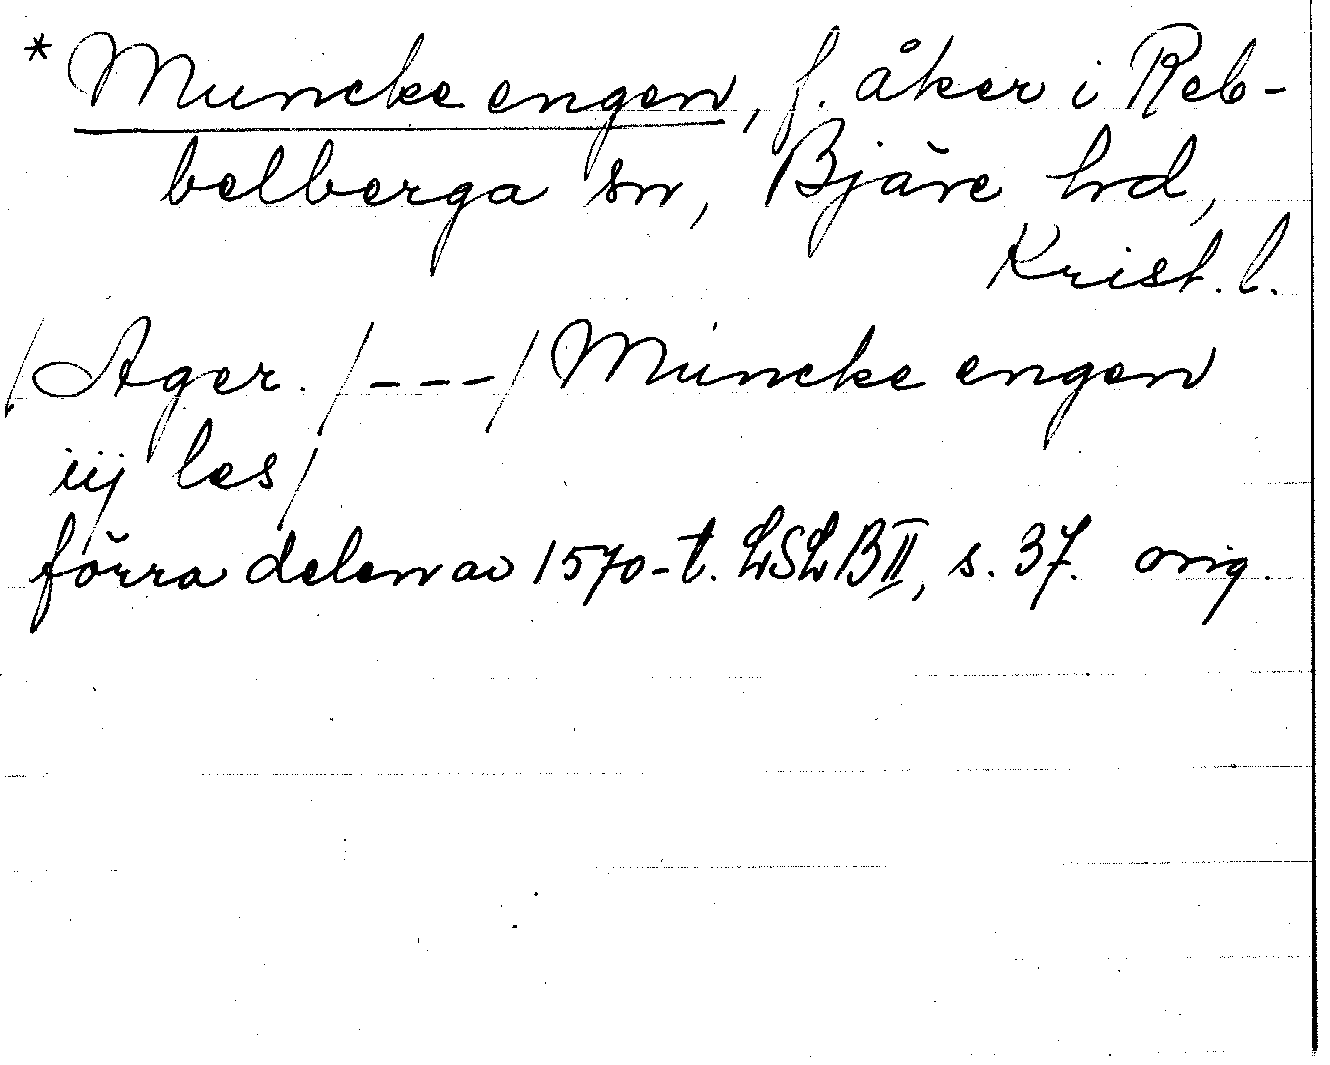 * Muncke engen, f. åker i Reb-
belberga sn, Bjäre hd,
Krist. l.
/Ager. /---/ Muncke engen
iij les/
förra delen av 1570-t. LSLB II, s. 37. orig.